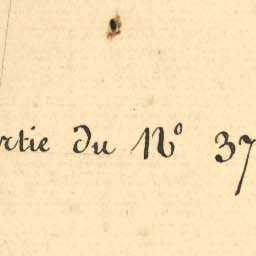 rtie du N° 37